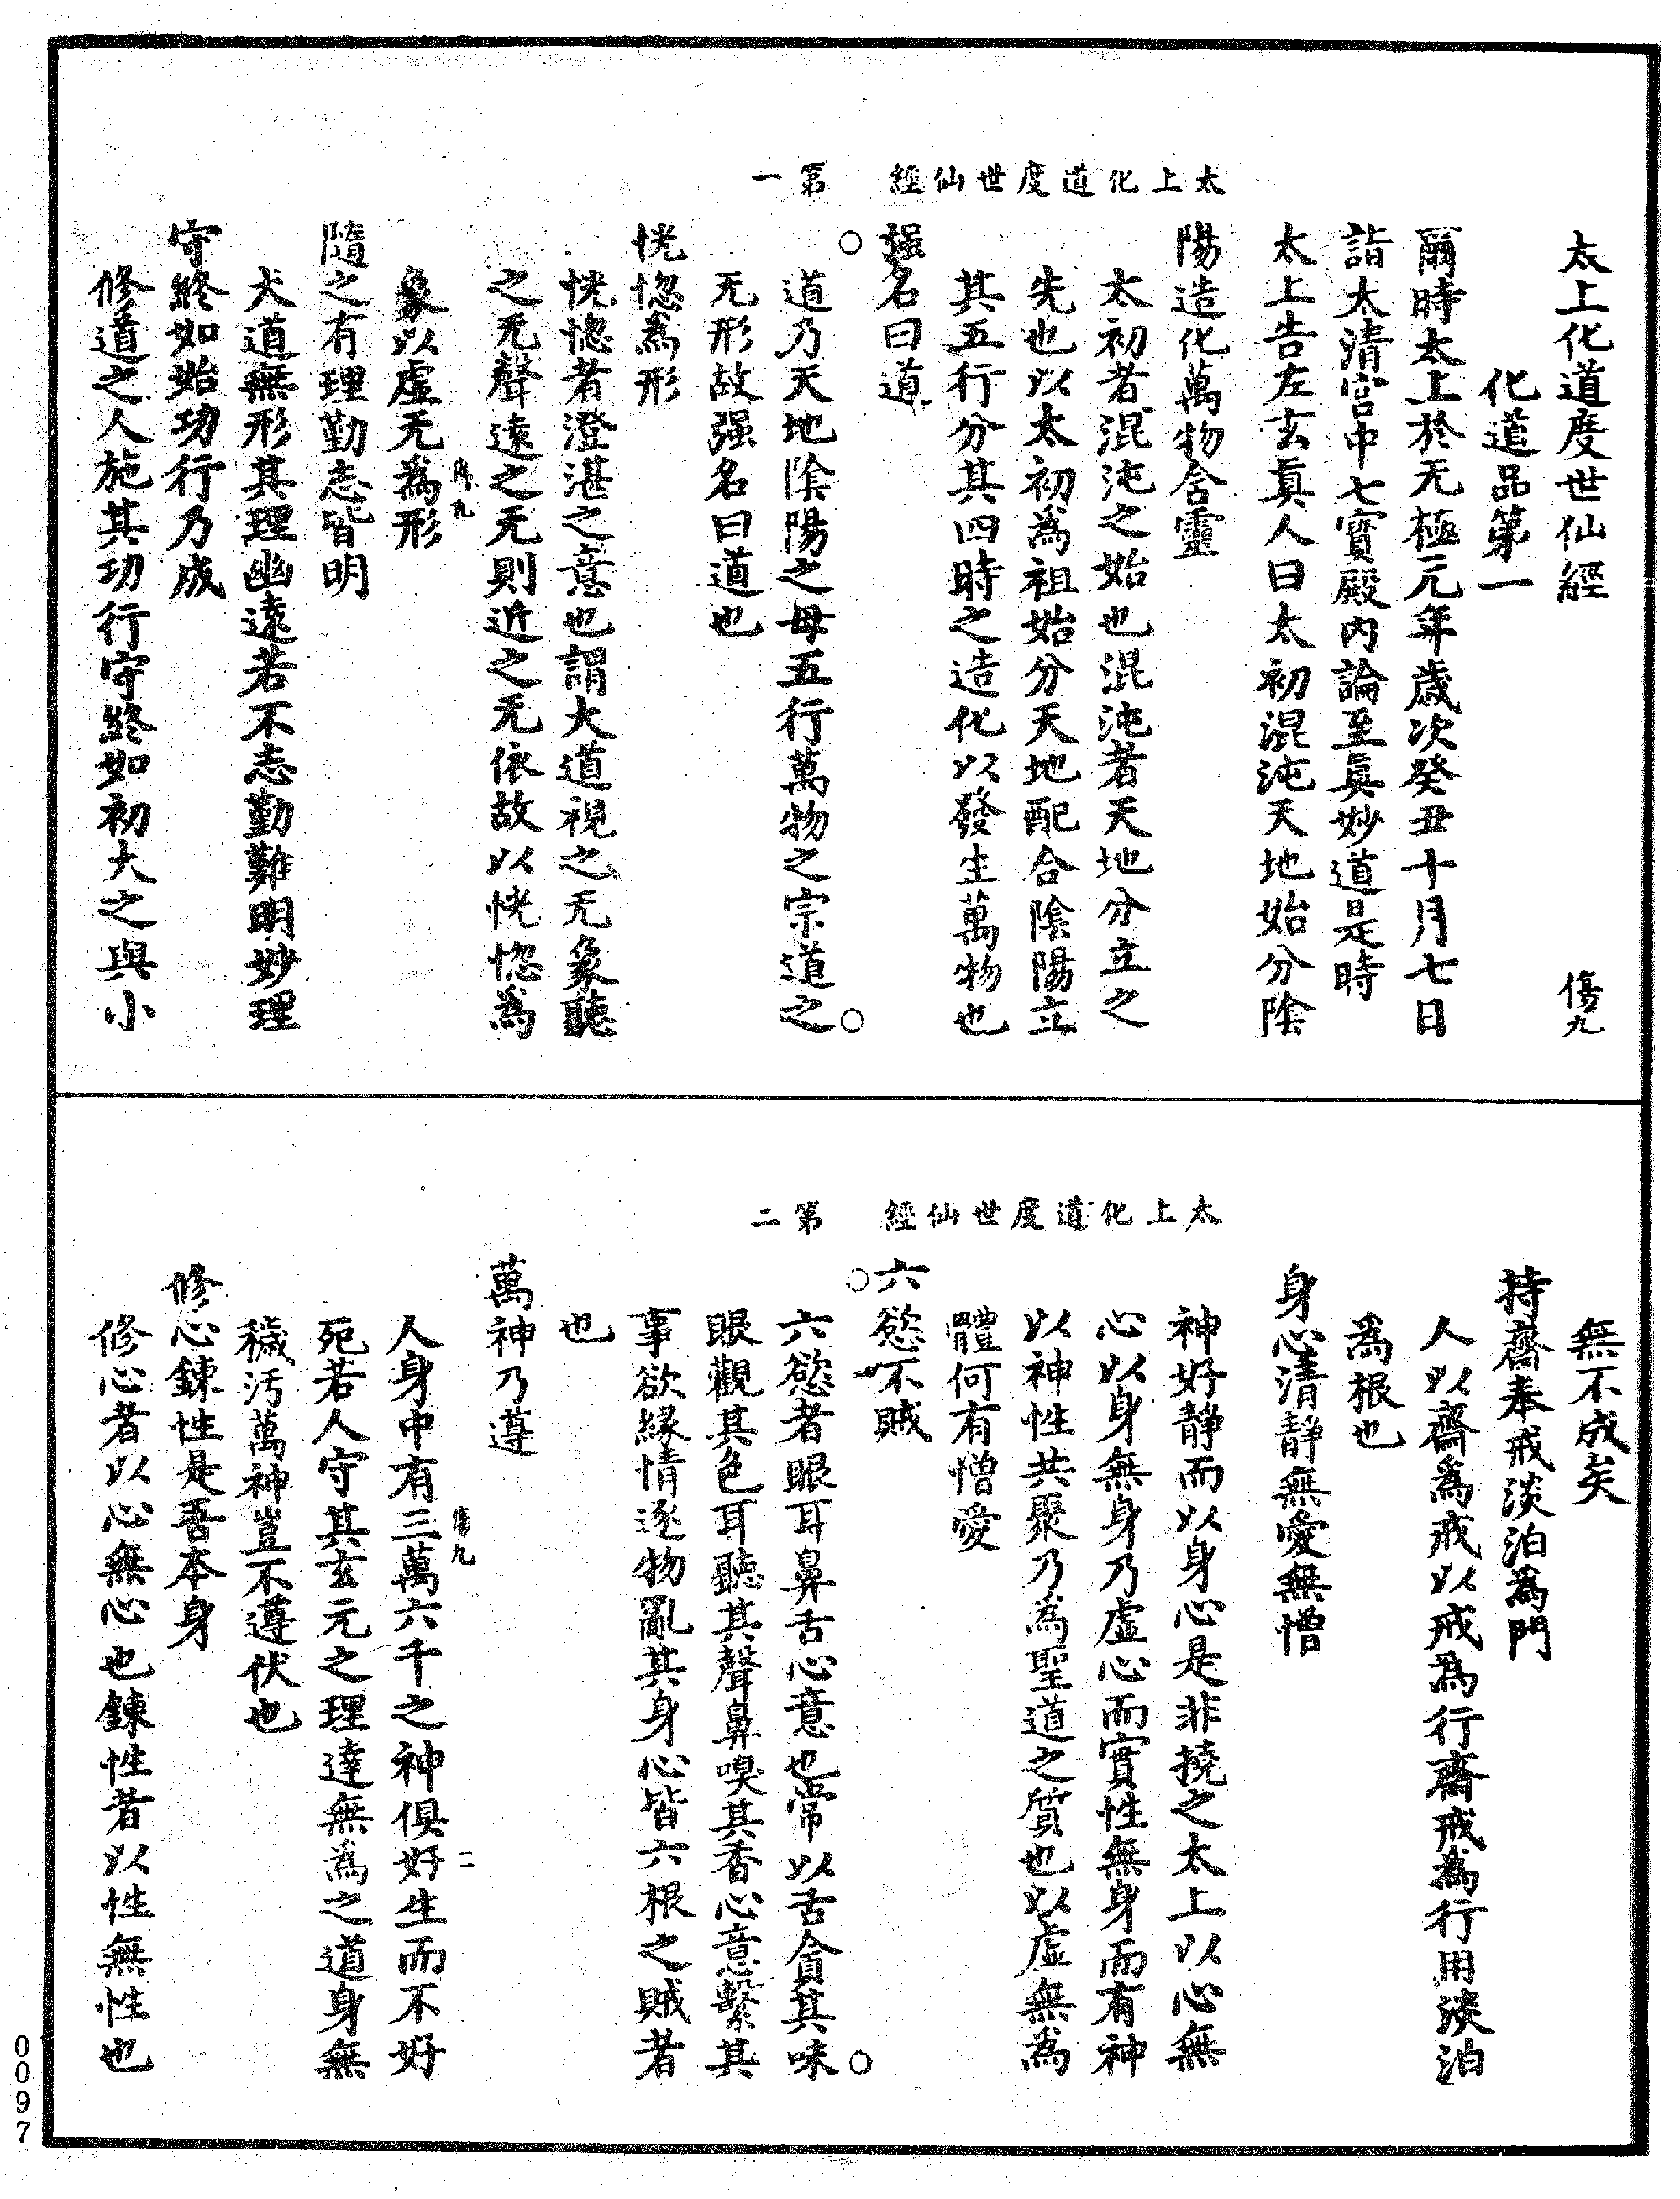 太上化道度世仙經 傷九
化道品第一
爾時太上於无極元年歲次癸丑十月七日
詣太清宮中七寶殿內論至眞妙道是時
太上告左玄眞人曰太初混沌天地始分陰
陽造化萬物含靈
太初者混沌之始也混沌者天地分立之
先也以太初爲祖始分天地配合陰陽立
其五行分其四時之造化以發生萬物也
强名曰道
太上化道度世仙經 第一
道乃天地陰陽之母五行萬物之宗道之
无形故强名曰道也
恍惚爲形
恍惚者澄湛之意也謂大道視之无象聽
之无聲遠之无則近之无依故以恍惚爲
傷九
象以虛无爲形
隨之有理勤志皆明
大道無形其理幽遠若不志勤難明妙理
守終如始功行乃成
修道之人施其功行守終如初大之與小
無不成矣
持齋奉戒淡泊爲門
人以齋爲戒以戒爲行齋戒爲行用淡泊
爲根也
身心清靜無愛無憎
神好靜而以身心是非撓之太上以心無
心以身無身乃虛心而實性無身而有神
以神性共聚乃爲聖道之質也以虛無爲
體何有憎愛
六慾不賊
太上化道度世仙經 第二
六慾者眼耳鼻舌心意也常以舌貪其味
眼觀其色耳聽其聲鼻嗅其香心意繫其
事欲緣情逐物亂其身心皆六根之賊者
也
萬神乃遵
傷九 二
人身中有三萬六千之神俱好生而不好
死若人守其玄元之理達無爲之道身無
穢污萬神豈不遵伏也
修心鍊性是吾本身
修心者以心無心也鍊性者以性無性也
0097